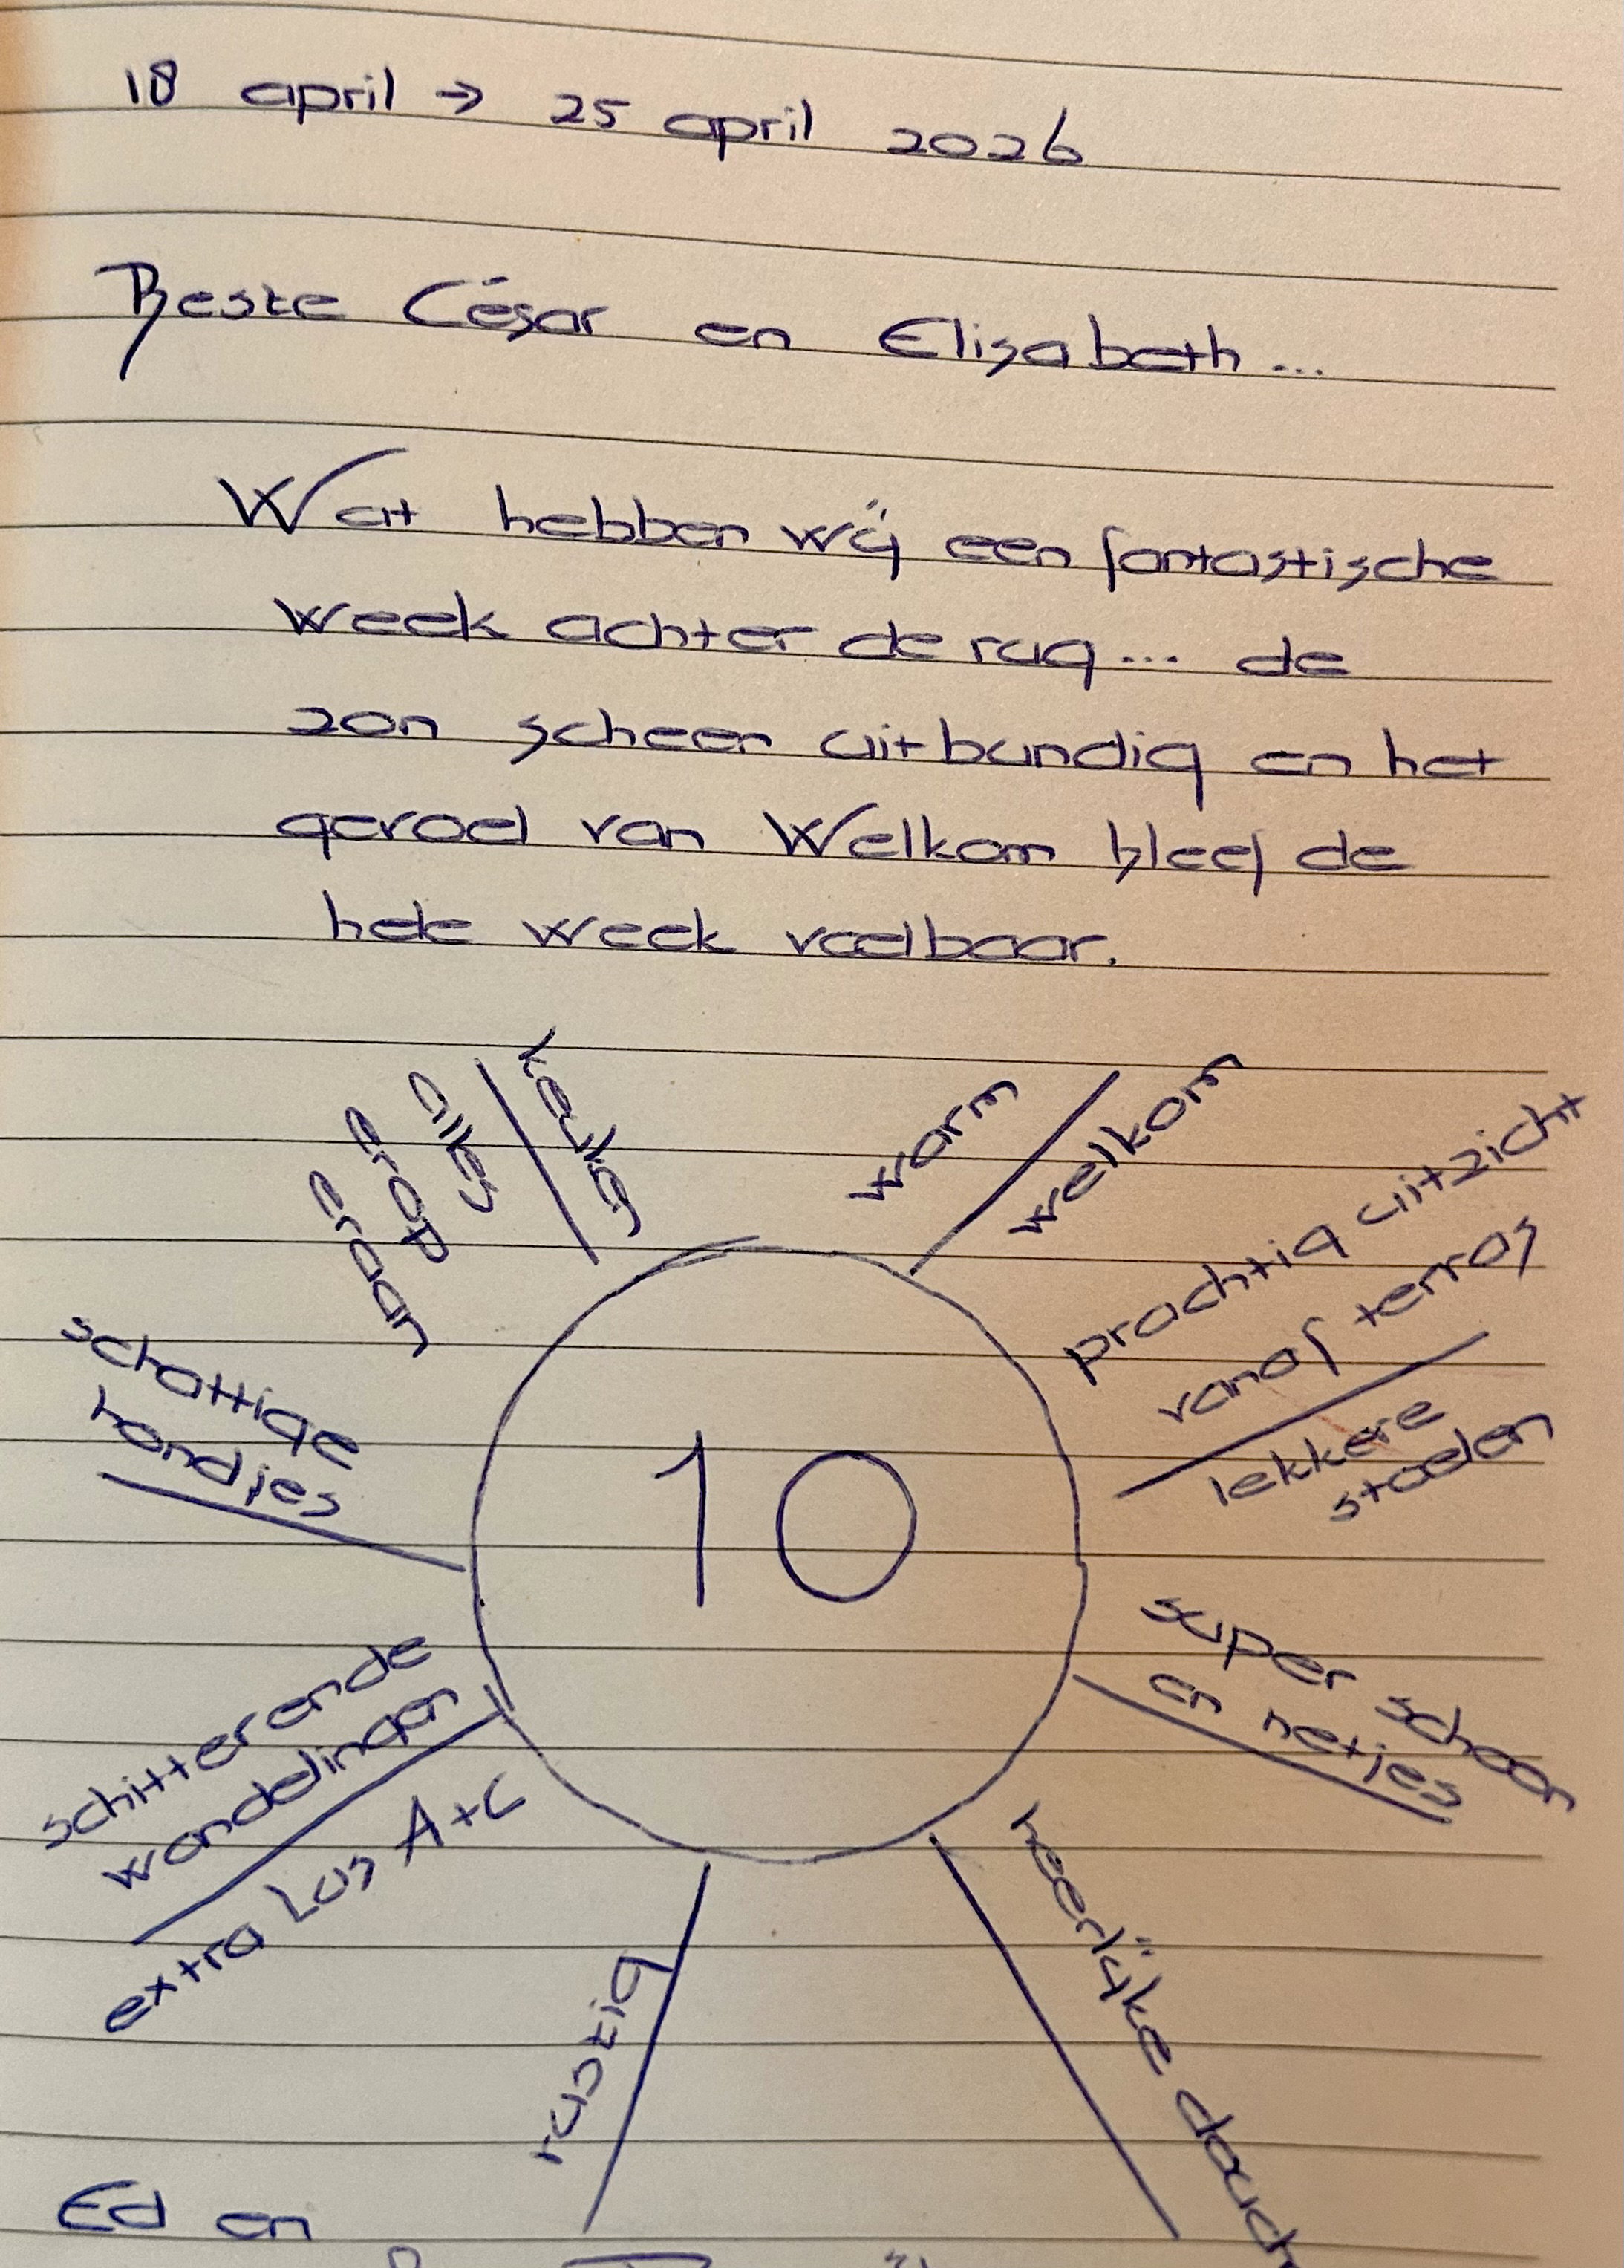 18 april → 25 april 2026
Beste César en Elisabeth...
Wat hebben wij een fantastische
week achter de rug... de
zon scheen uitbundig en het
gevoel van Welkom bleef de
hele week voelbaar.
keuken
alles
erop
eraan
warm
welkom
prachtig uitzicht
vanaf terras
lekkere
stoelen
schattige
hondjes
10
super schoon
en netjes
schitterende
wandelingen
extra Lus A+C
rustig
heerlijke douch
Ed en